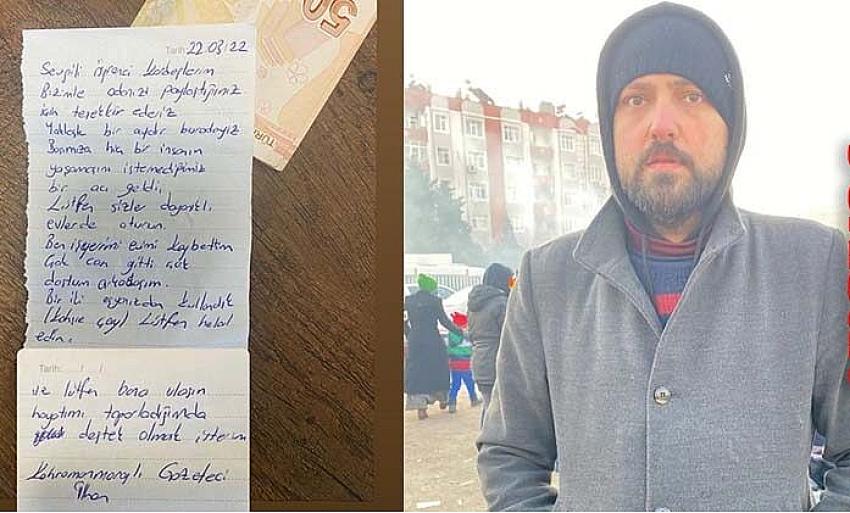 Tarih: 22.03/22
Sevgili öğrenci kardeşlerim
Bizimle odanızı paylaştığınız
için teşekkür ederiz
Yaklaşık bir aydır buradayız
Başımıza hiç bir insanın
yaşamasını istemediğimiz
bir acı geldi.
Lütfen sizler dayanıklı
evlerde oturun.
Ben işyerimi evimi kaybettim
Çok can gitti çok
dostum arkadaşım.
Bir iki eşyanızdan kullandık
(kahve çay) Lütfen helal
edin.
Tarih: / /
ve lütfen bana ulaşın
hayatımı toparladığımda
destek olmak isterim
Kahramanmaraşlı Gazeteci
İlhan
50
TÜRK